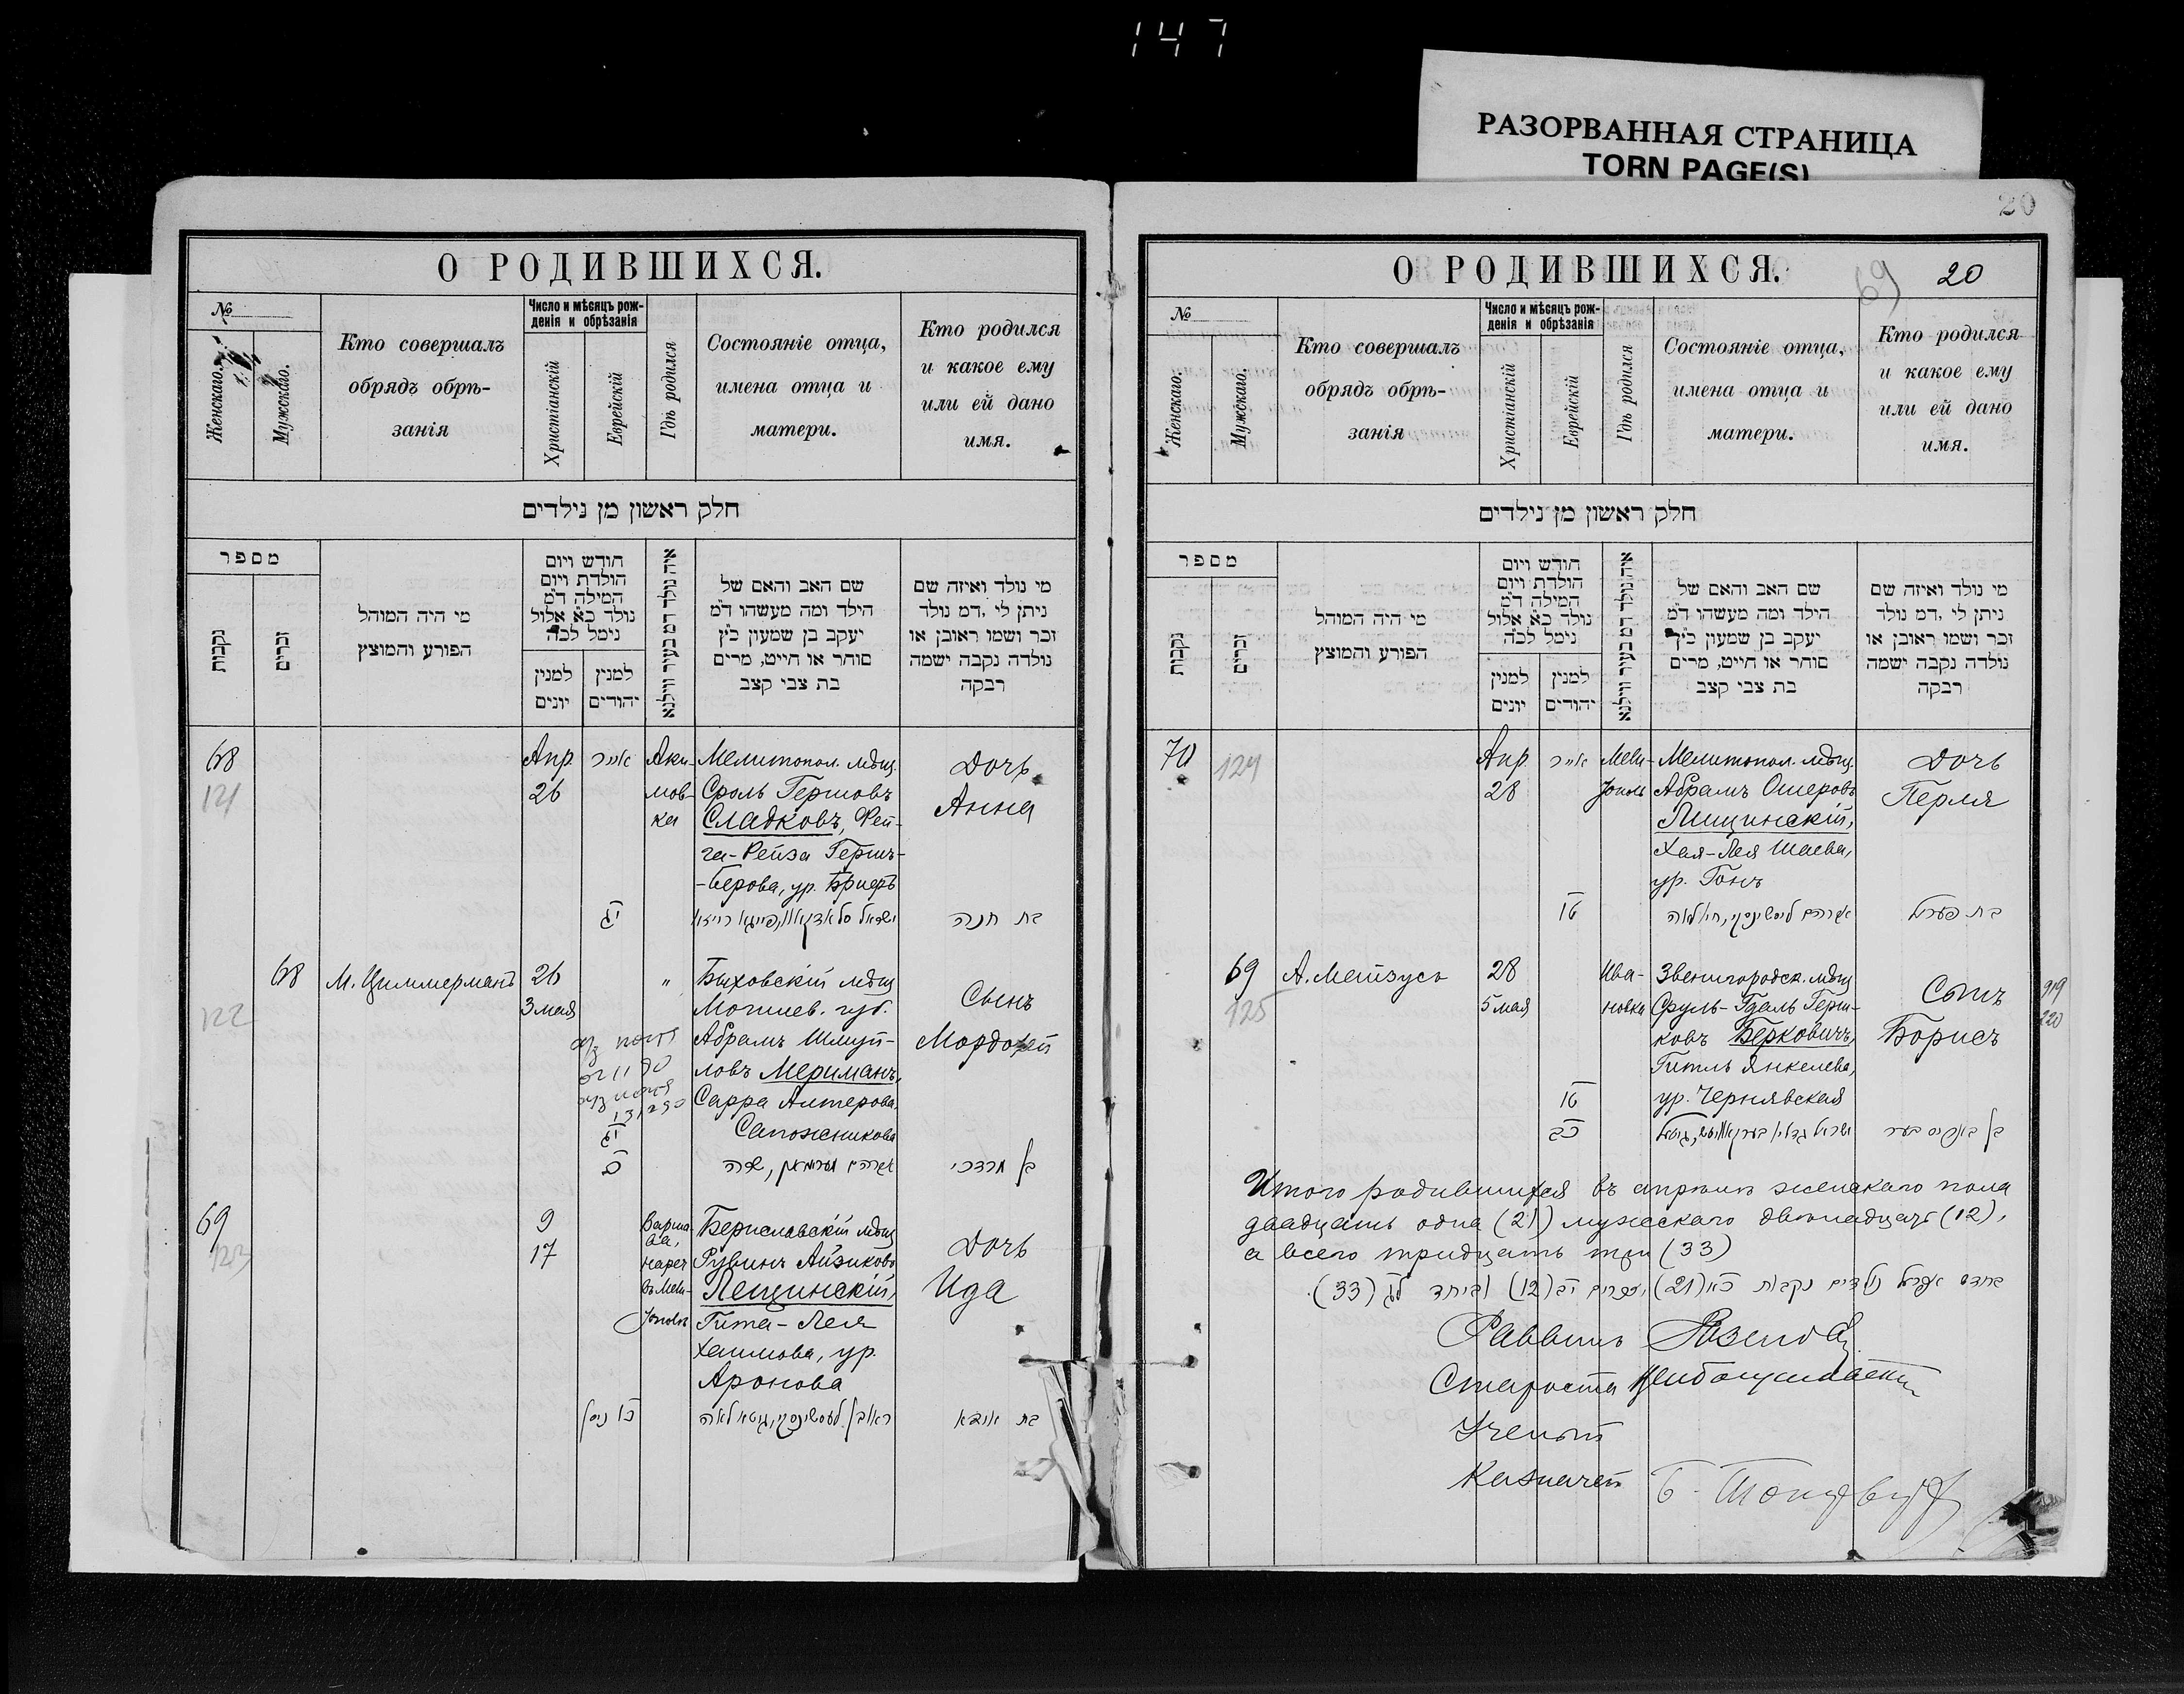 147
РАЗОРВАННАЯ СТРАНИЦА
TORN PAGE(S)
О РОДИВШИХСЯ.
№
Женскаго.
Мужскаго.
Кто совершалъ
обрядъ обрѣ-
занія
Число и мѣсяцъ рож-
денія и обрѣзанія
Христіанскій
Еврейскій
Гдѣ родился
Состояніе отца,
имена отца и
матери.
Кто родился
и какое ему
или ей дано
имя.
חלק ראשון מן נילדים
מספר
נקבות
זכרים
מי היה המוהל
הפורע והמוצץ
חודש ויום
הולדת ויום
המילה ד״מ
נולד כ״א אלול
נימל לכ״ה
למנין
יונים
למנין
יהודים
איה נולד דמ בעיר ווילנא
שם האב והאם של
הילד ומה מעשהו ד״מ
יעקב בן שמעון כ״ץ
סוחר או חייט, מרים
בת צבי קצב
מי נולד ואיזה שם
ניתן לי ,דמ נולד
זכר ושמו ראובן או
נולדה נקבה ישמה
רבקה
68
121
Апр
26
אייר
יג
Аки-
мов-
ка
Мелитопол. мѣщ.
Сроль Гершовъ
Сладковъ, Фей-
га-Рейза Гершъ-
-Берова, ур.
Дочь
Анна
בת חנה
68
122
М. Циммерманъ
26
3 мая
יג
"
Быховскій мѣщ
Могилев. губ.
Абрамъ Шмуй-
ловъ Мериманъ,
Сарра Алтерова,
Сапожникова
Сынъ
Мордохей
בן מרדכי
69
123
9
17
כ״ו ניסן
Варша
ва,
нареч
въ Мели-
тополѣ
Бериславскій мѣщ
Рувинъ Айзиковъ
Лещинскій,
Гита-Лея
Хаимова, ур.
Аронова
Дочь
Ида
בת אידא
20
О РОДИВШИХСЯ.
69
20
№
Женскаго.
Мужскаго.
Кто совершалъ
обрядъ обрѣ-
занія
Число и мѣсяцъ рож-
денія и обрѣзанія
Христіанскій
Еврейскій
Гдѣ родился
Состояніе отца,
имена отца и
матери.
Кто родился
и какое ему
или ей дано
имя.
חלק ראשון מן נילדים
מספר
נקבות
זכרים
מי היה המוהל
הפורע והמוצץ
חודש ויום
הולדת ויום
המילה ד״מ
נולד כ״א אלול
נימל לכ״ה
למנין
יונים
למנין
יהודים
איה נולד דמ בעיר ווילנא
שם האב והאם של
הילד ומה מעשהו ד״מ
יעקב בן שמעון כ״ץ
סוחר או חייט, מרים
בת צבי קצב
מי נולד ואיזה שם
ניתן לי ,דמ נולד
זכר ושמו ראובן או
נולדה נקבה ישמה
רבקה
70
124
Апр
28
אייר
טו
Мели-
тополь
Мелитопол. мѣщ.
Абрамъ Ошеровъ
Лищинскій,
Хая-Лея Шаева,
ур. Гонъ
Дочь
Перля
בת פערל
69
125
А. Мейзусъ
28
5 мая
טו
כב
Ива-
новка
Звенигородск. мѣщ
Сруль-Гдаль Герш-
ковъ Берковичъ,
Гитль Янкелева,
ур. Чернявская
Сынъ
Борисъ
919
220
Итого родившихся въ апрѣлѣ женскаго пола
двадцать одна (21) мужскаго двѣнадцать (12),
а всего тридцать три (33)
בחדש אפריל נולדים נקבות כא (21), זכרים יב (12) וביחד לג (33).
Раввинъ
Староста
Ученый
Казначей